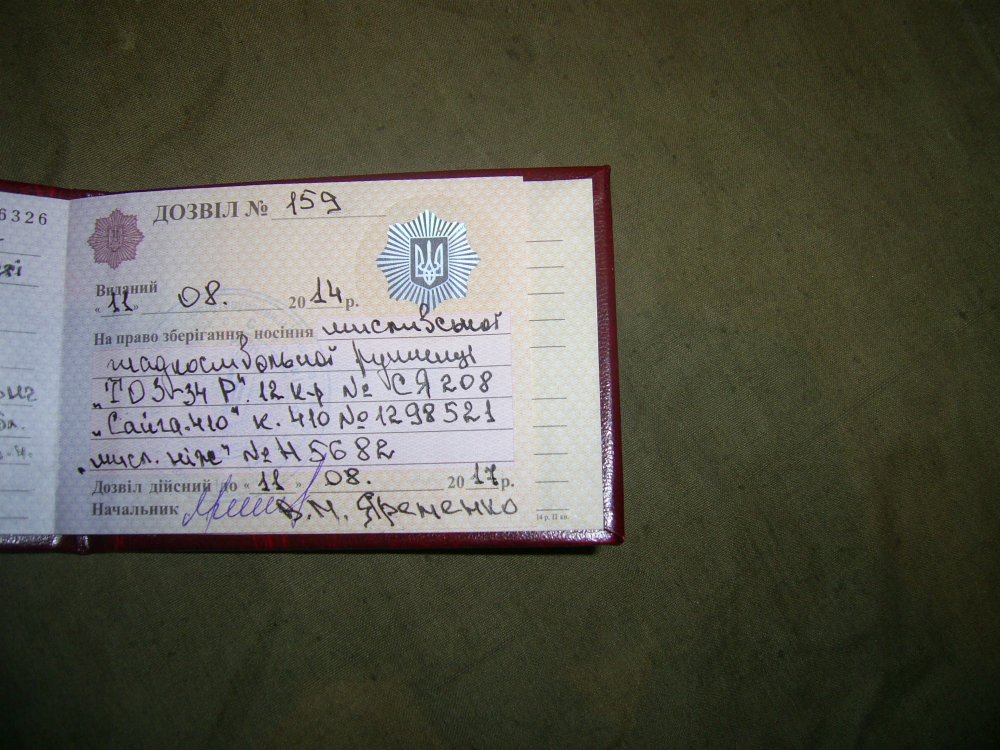 6326
ДОЗВІЛ № 159
Виданий
"11" 08. 2014 р.
На право зберігання, носіння мисливської
гладкоствольної рушниці
"ТОЗ-34 Р". 12 к-р № СЯ 208
"Сайга.410" к. 410 № 1298521
"мисл. ніж" № Н 5682
Дозвіл дійсний до "11" 08. 2017 р.
Начальник В.М. Яременко